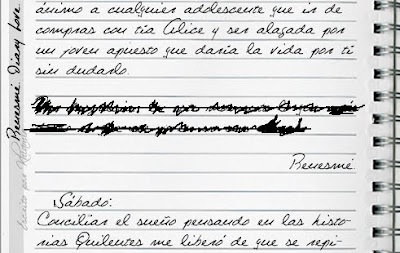 ánimo a cualquier adolescente que ir de
compras con tía Alice y ser alagada por
un joven apuesto que daría la vida por ti
sin dudarlo.
Renesmé.
Sábado:
Conciliar el sueño pensando en las histo
rias Quilentes me liberó de que se repi-
Renesmé Diary Love
Escrito por